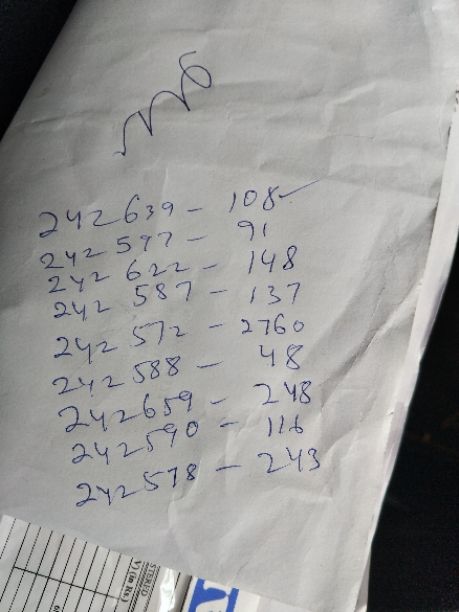 242639 - 108 ✓
242597 - 91
242622 - 148
242 587 - 137
242 572 - 2760
242588 - 48
242659 - 248
242590 - 116
242578 - 243
STERED
V) (in Rs)